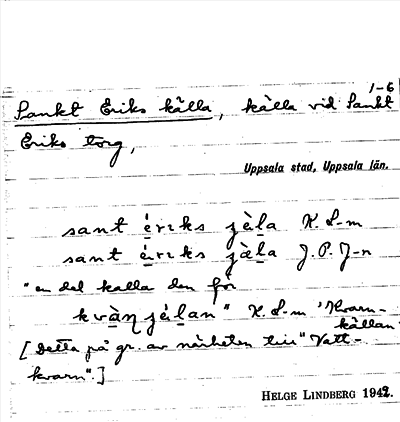 1-6
Sankt Eriks källa, källa vid Sankt
Eriks torg,
Uppsala stad, Uppsala län.
sant ériks jèla K. L-m
sant éiriks jèla J. P. J-n
"en del kalla den för
kvàn jélan" K. L-m 'Kvarn-
källan
[Detta på gr. av närheten till "Vatt-
kvarn".]
HELGE LINDBERG 1942.